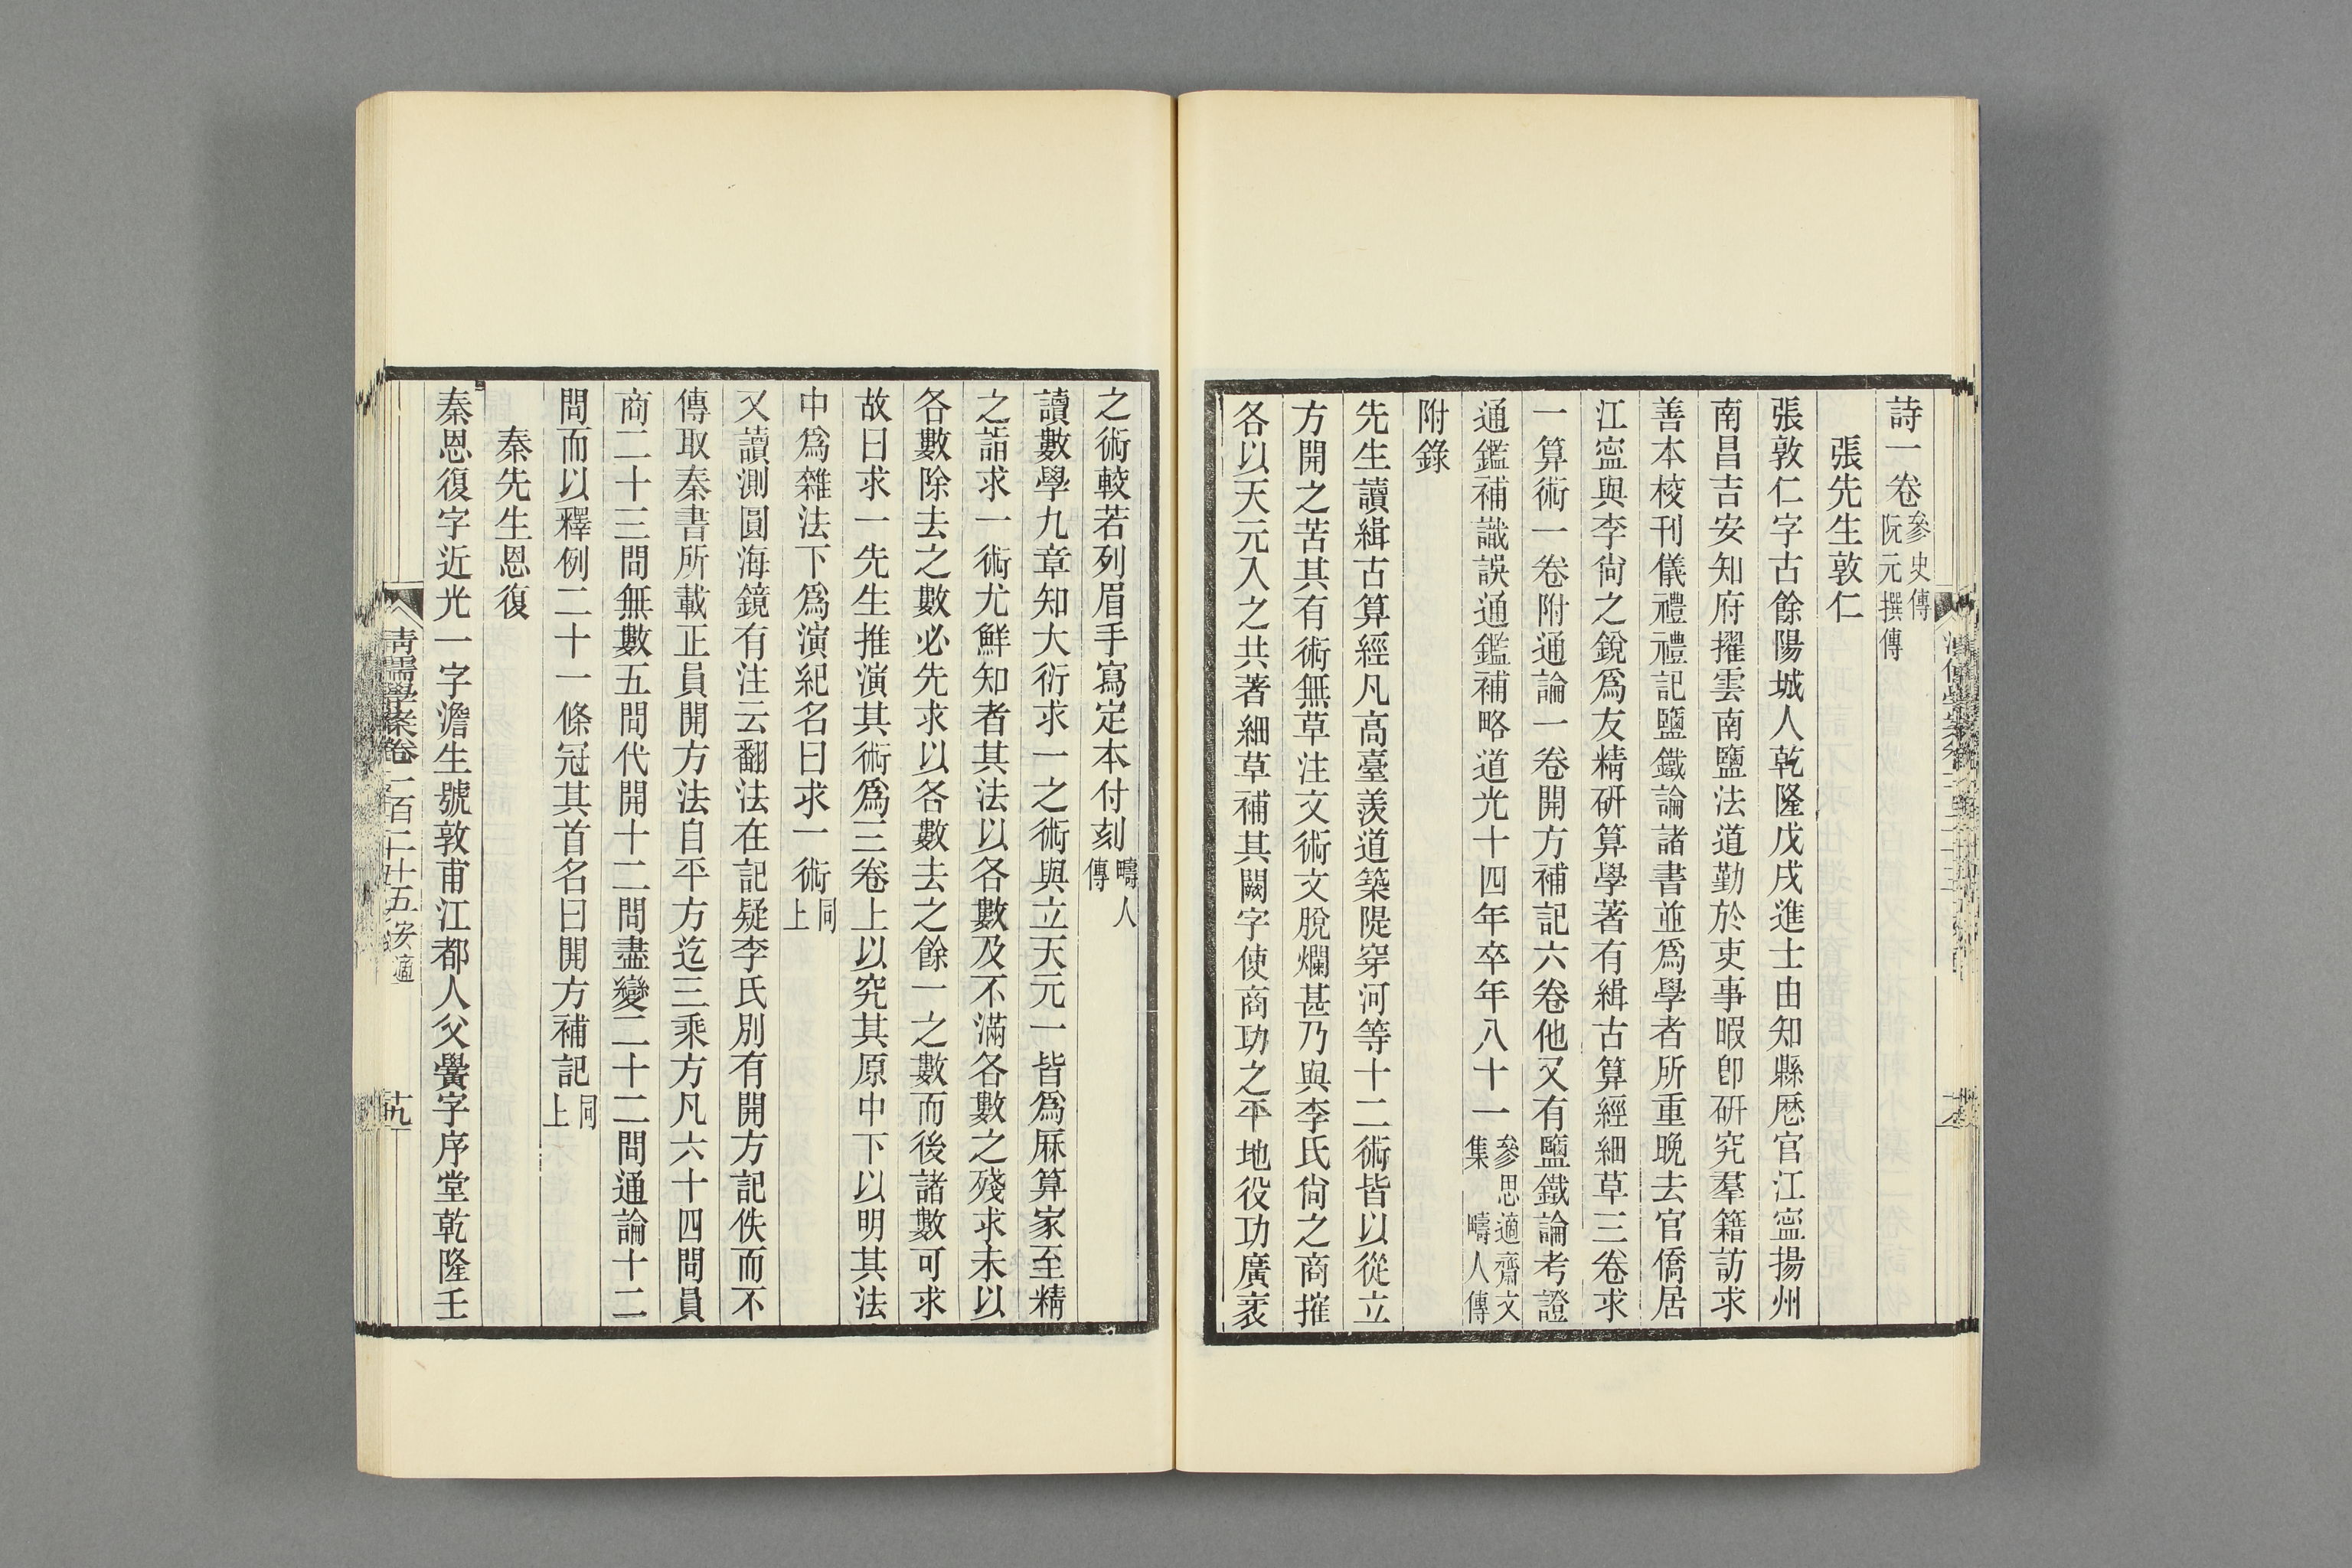 詩一卷參史傳阮元撰傳
張先生敦仁
張敦仁字古餘陽城人乾隆戊戌進士由知縣厯官江寧揚州
南昌吉安知府擢雲南鹽法道勤於吏事暇卽研究羣籍訪求
善本校刊儀禮禮記鹽鐵論諸書並爲學者所重晚去官僑居
江寧與李尙之銳爲友精研算學著有緝古算經細草三卷求
一算術一卷附通論一卷開方補記六卷他又有鹽鐵論考證
通鑑補識誤通鑑補略道光十四年卒年八十一參思適齋文集 疇人傳
附錄
先生讀緝古算經凡高臺羨道築隄穿河等十二術皆以從立
方開之苦其有術無草注文術文脫爛甚乃與李氏尙之商搉
各以天元入之共著細草補其闕字使商功之平地役功廣袤
之術較若列眉手寫定本付刻疇人傳
讀數學九章知大衍求一之術與立天元一皆爲厤算家至精
之詣求一術尤鮮知者其法以各數及不滿各數之殘求未以
各數除去之數必先求以各數去之餘一之數而後諸數可求
故曰求一先生推演其術爲三卷上以究其原中下以明其法
中爲雜法下爲演紀名曰求一術同上
又讀測圓海鏡有注云翻法在記疑李氏別有開方記佚而不
傳取秦書所載正員開方法自平方迄三乘方凡六十四問員
商二十三問無數五問代開十二問盡變二十二問通論十二
問而以釋例二十一條冠其首名曰開方補記同上
秦先生恩復
秦恩復字近光一字澹生號敦甫江都人父黌字序堂乾隆壬
清儒學案卷一百二十五 安適 十九